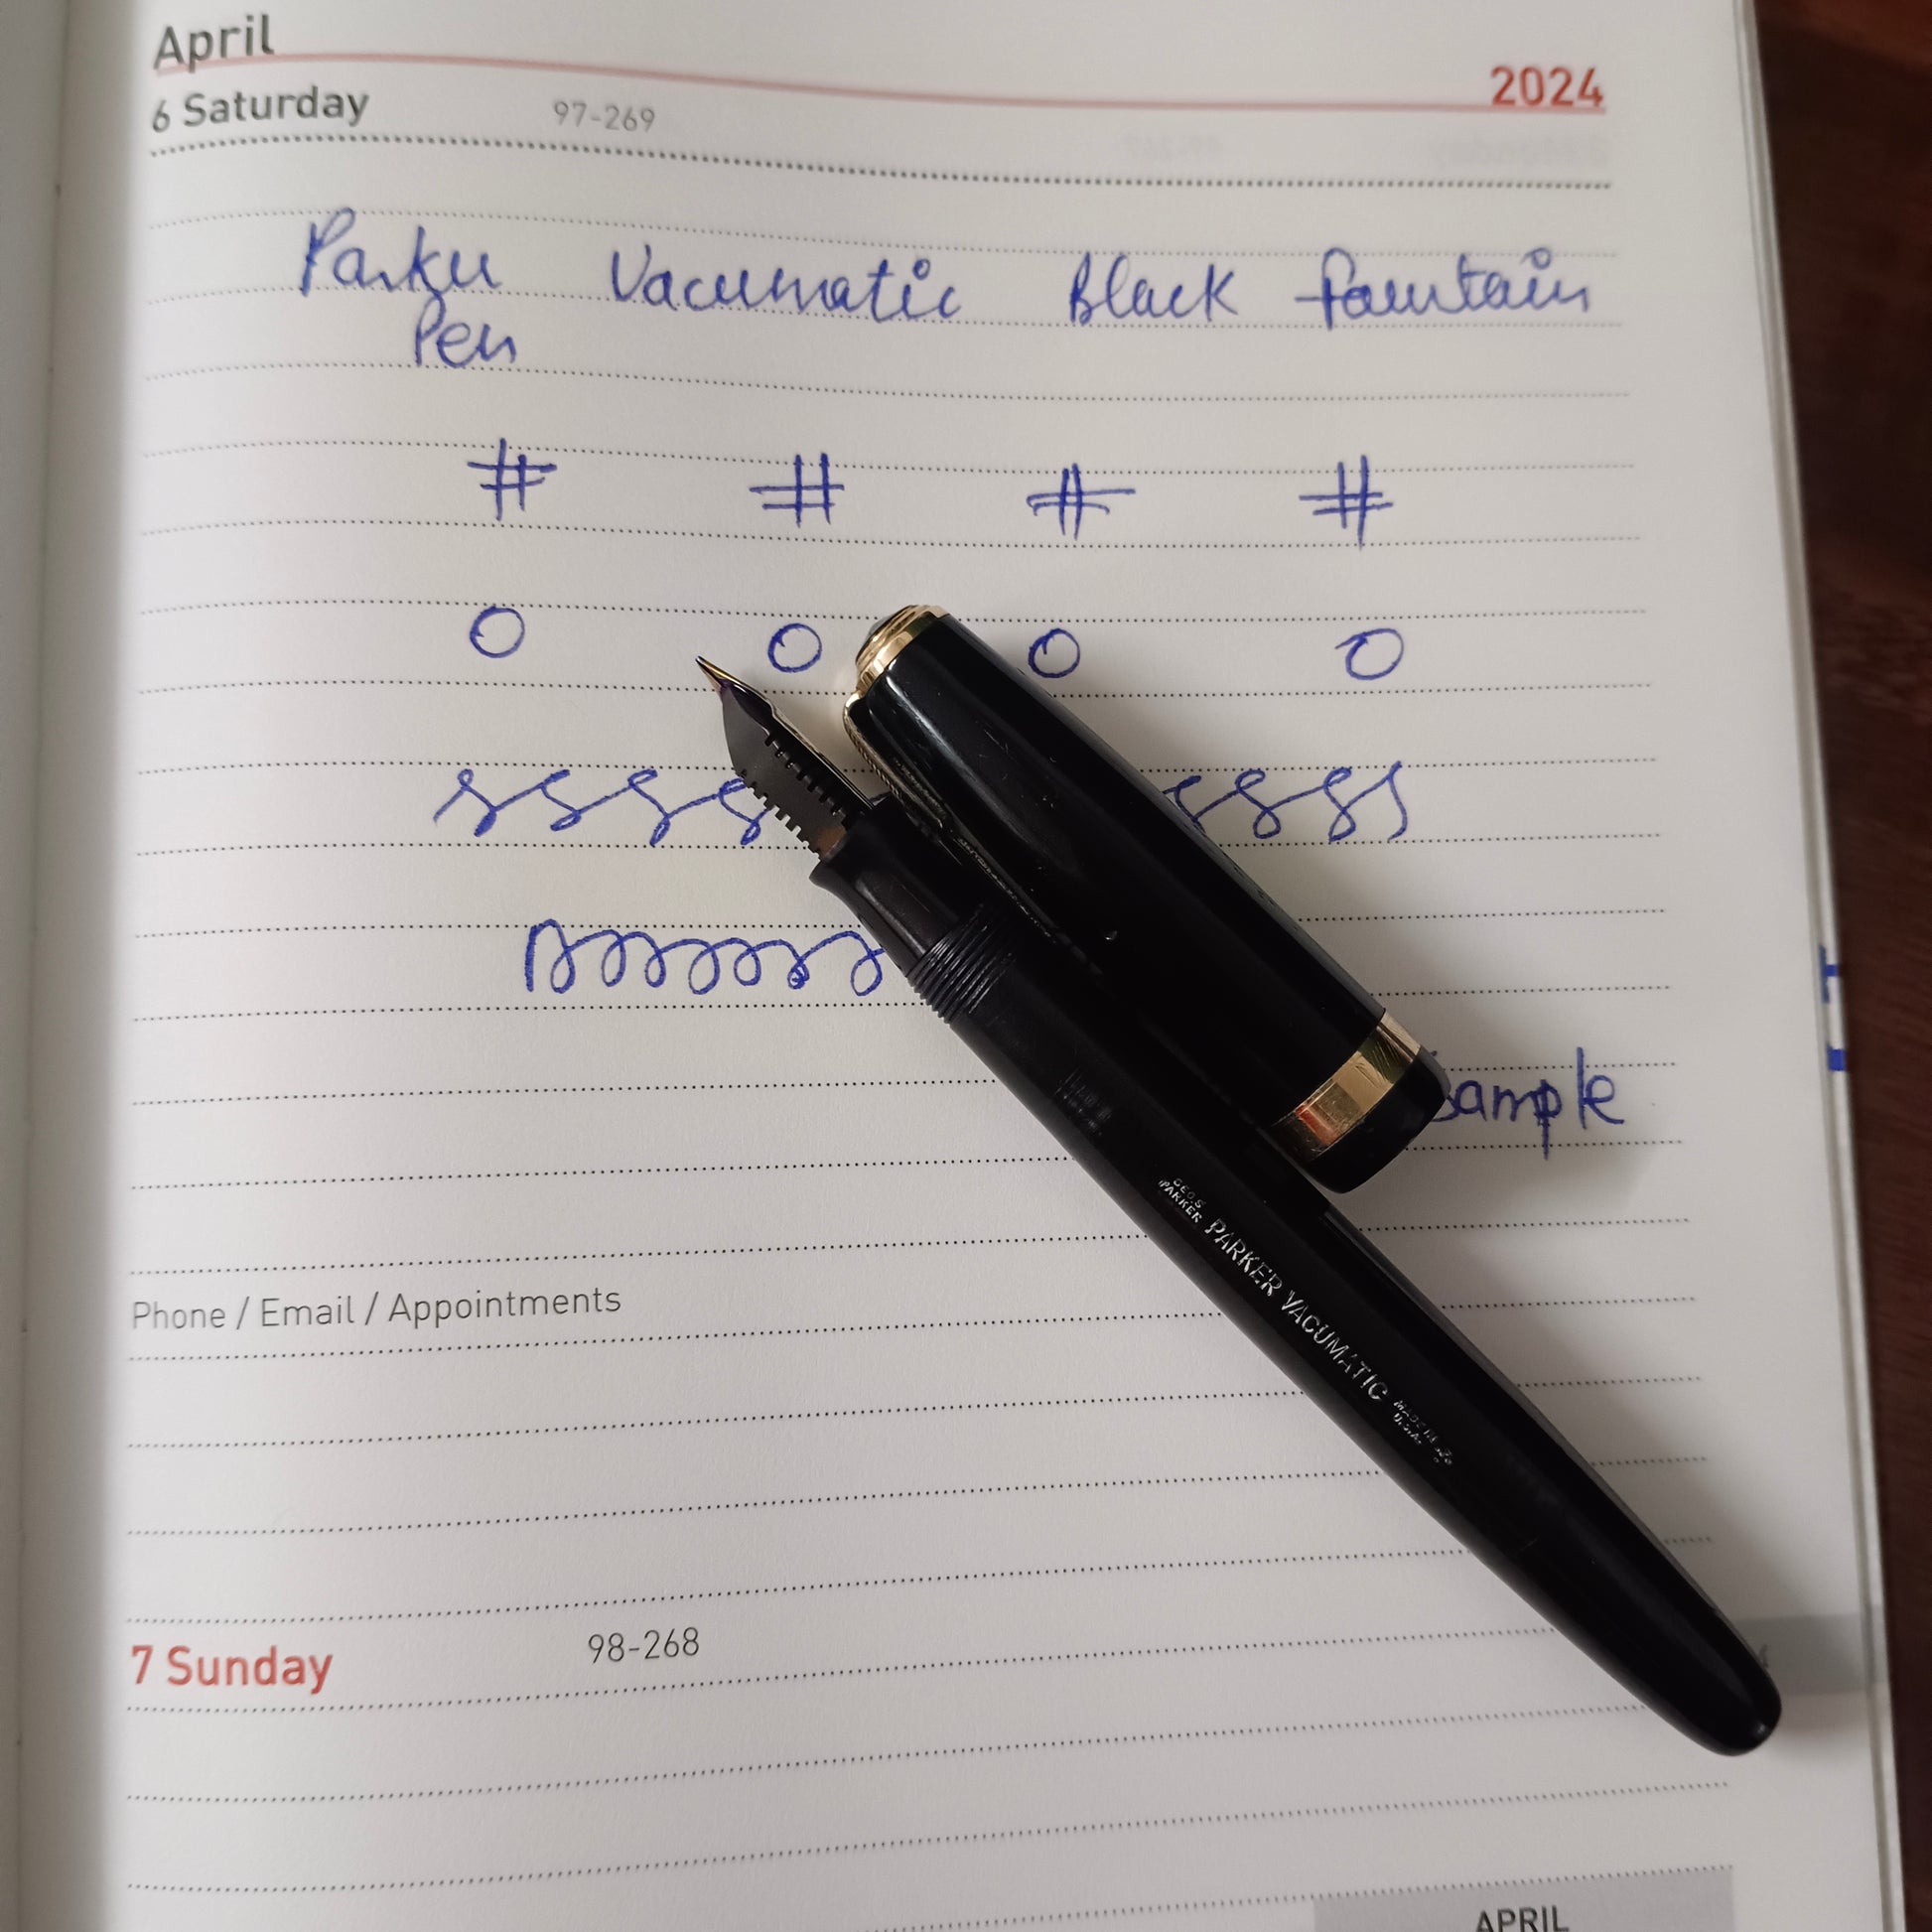 April
2024
6 Saturday 97-269
Parker Vacumatic Black Fountain
Pen
# # # #
O O O O
sample
GEO.S.
PARKER
PARKER VACUMATIC
MADE IN
U.S.A.
Phone / Email / Appointments
7 Sunday 98-268
APRIL